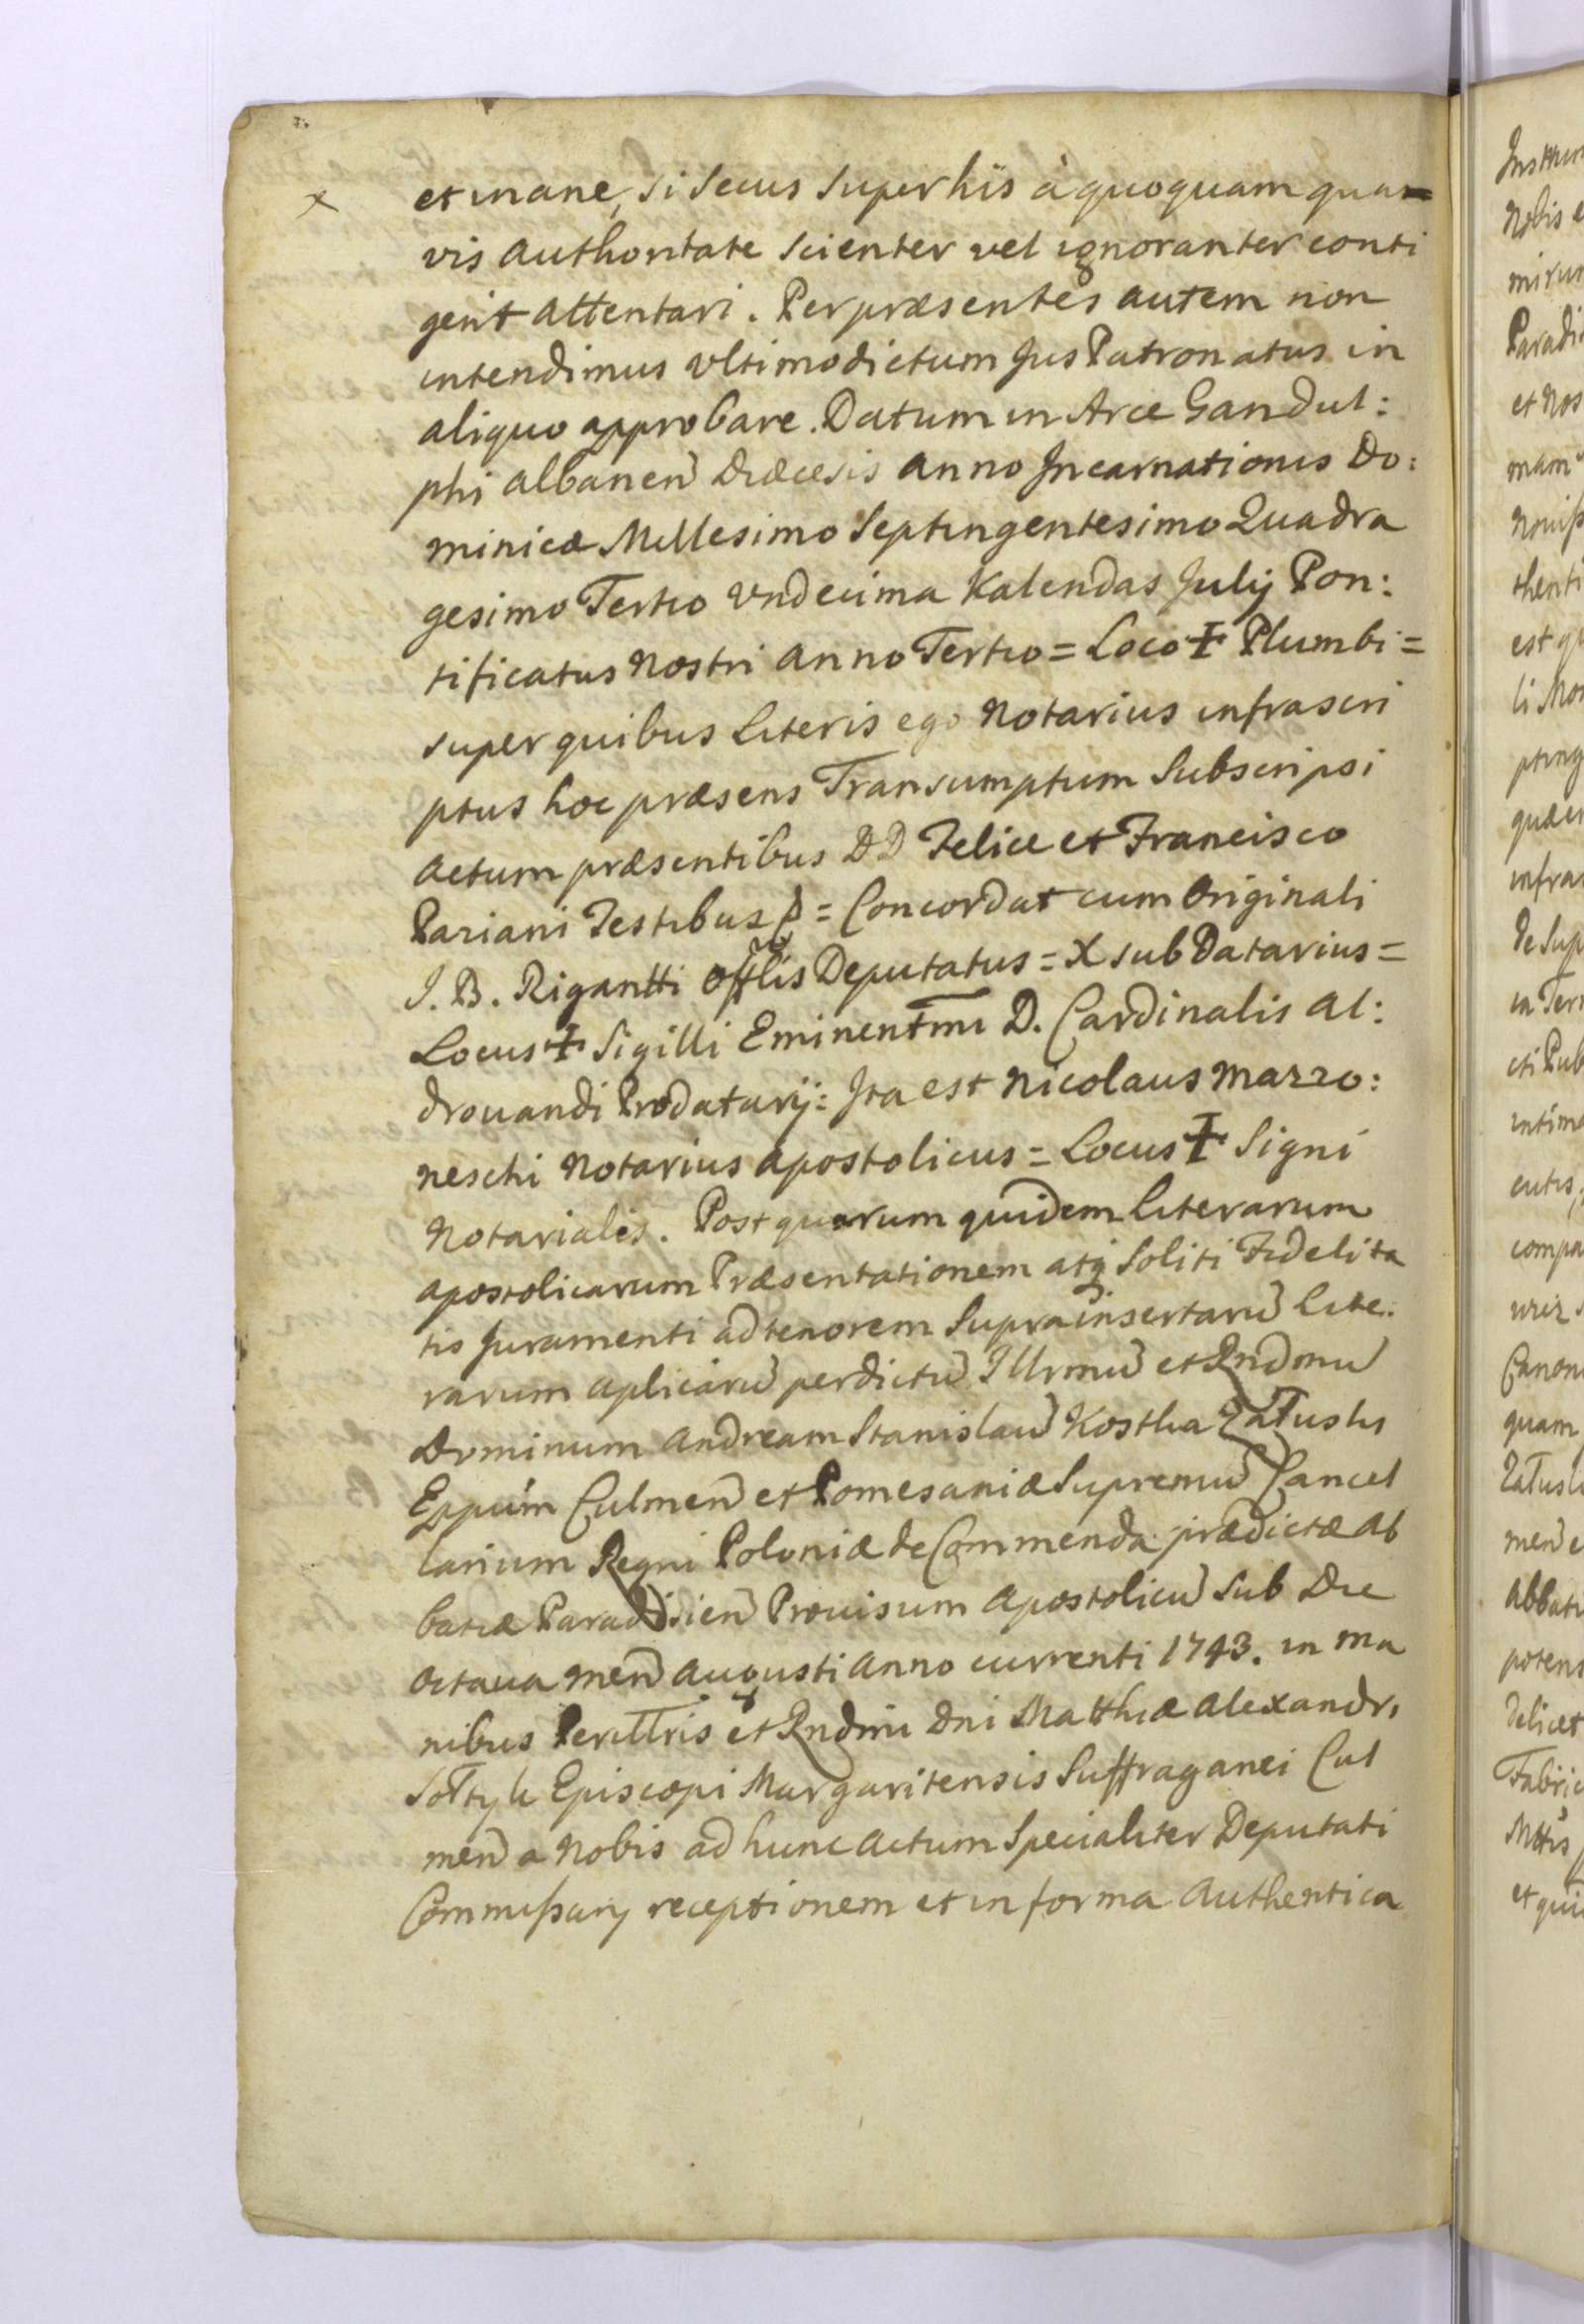 et inane, si secus super hïs à quoquam quar=
vis authoritate scienter vel ignoranter conti
gerit attentari. Per præsentes autem non
intendimus ultimodictum Jus Patronatus in
aliquo approbare. Datum in Arce Gandul:
phi Albanen Diæcesis Anno Incarnationis Do:
minicæ Millesimo Septingentesimo Quadra
gesimo Tertio Undecima Kalendas Julij Pon:
tificatus Nostri Anno Tertio = Loco ✝ Plumbi =
super quibus Literis ego Notarius infrascri
ptus hoc præsens Transumptum Subscripsi
Actum præsentibus DD Felice et Francisco
Pariani Testibus = Concordat cum Originali
J. B. Rigantti Offlis Deputatus = X sub Datarius =
Locus ✝ Sigilli Eminentmi D. Cardinalis Al:
drouandi Prodatarij: Ita est Nicolaus Marzo:
neschi Notarius Apostolicus = Locus ✝ Signi
Notarialis. Post quarum quidem Literarum
Apostolicarum Præsentationem atq Soliti Fidelita
tis Juramenti ad tenorem Suprainsertarū Lite:
rarum Aplicarū per dictū Illrmū et Rndmū
Dominum Andream Stanislaū Kostka Załuski
Eppum Culmen et Pomesaniæ Supremū Cancel
larium Regni Poloniæ de Commenda prædictæ Ab
batiæ Paradisien Prouisum Apostolicū Sub Die
Octaua Men Augusti Anno currenti 1743. in ma
nibus Perillris et Rndmi Dni Matthiæ Alexandri
Sołtyk Episcopi Margaritensis Suffraganei Cul
men a Nobis ad hunc Actum Specialiter Deputati
Commissarij receptionem et in forma Authentica